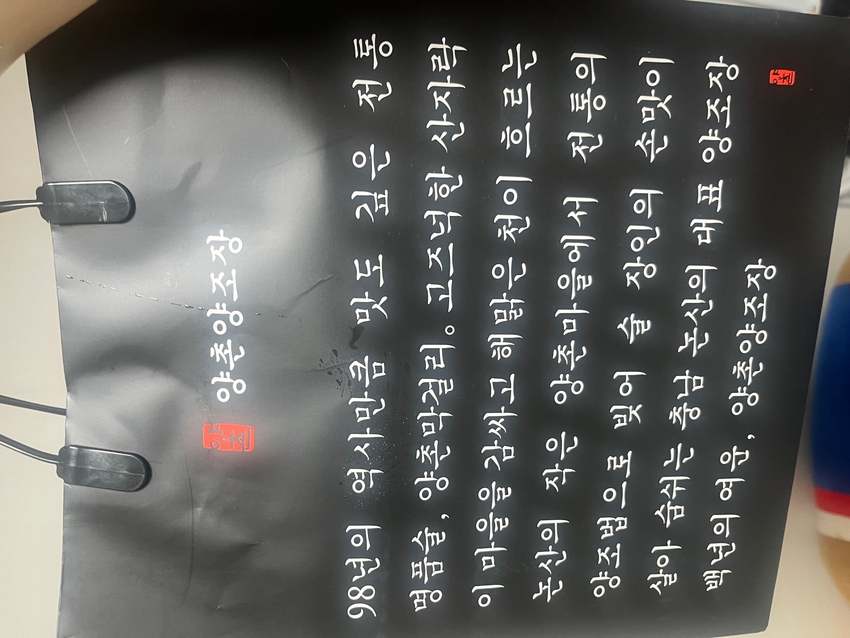 양촌
양촌양조장
98년의 역사만큼 맛도 깊은 전통
명품술, 양촌막걸리。고즈넉한 산자락
이 마을을 감싸고 해 맑은 천이 흐르는
논산의 작은 양촌마을에서 전통의
양조법으로 빚어 술 장인의 손맛이
살아 숨쉬는 충남 논산의 대표 양조장
백년의 여운, 양촌양조장
양촌